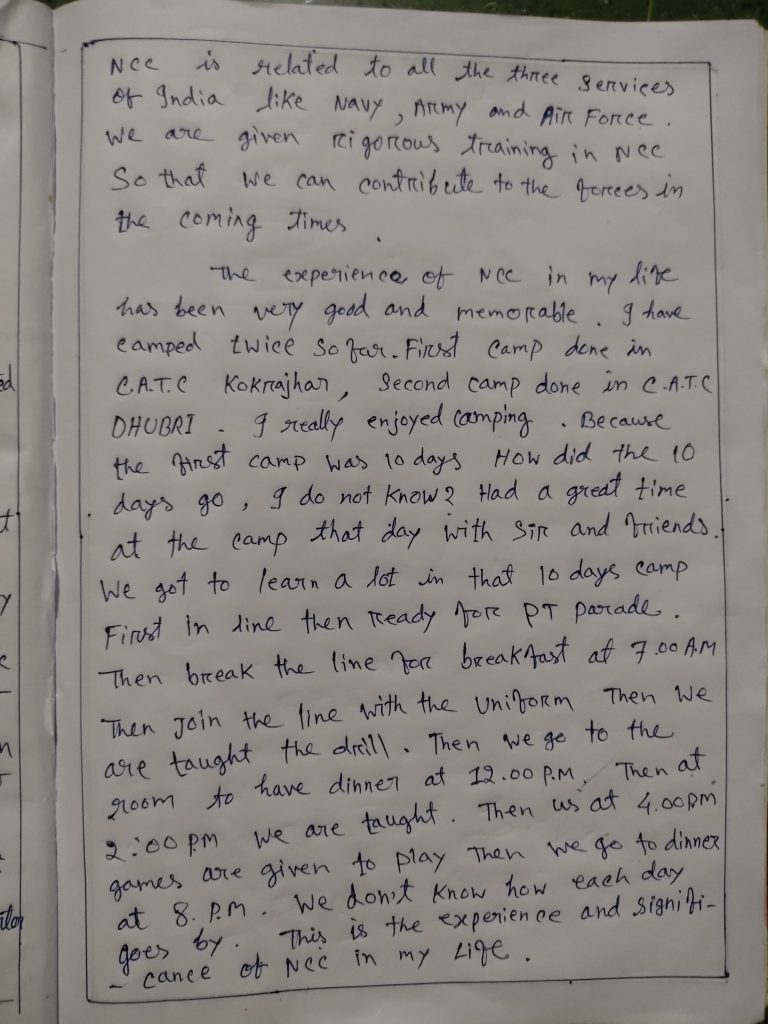 NCC is related to all the three Services
of India like Navy, Army and Air Force.
We are given rigorous training in NCC
So that We can contribute to the forces in
the coming times.
The experience of NCC in my life
has been very good and memorable. I have
camped twice So far. First Camp done in
C.A.T.C Kokrajhar, Second camp done in C.A.T.C
DHUBRI. I really enjoyed Camping. Because
the first camp was 10 days How did the 10
days go, I do not know? Had a great time
at the camp that day with Sir and friends.
We got to learn a lot in that 10 days camp
First in line then ready for PT parade.
Then break the line for breakfast at 7.00 A.M
Then Join the line with the Uniform Then We
are taught the drill. Then we go to the
room to have dinner at 12.00 P.M. Then at
2:00 P.M We are taught. Then us at 4.00PM
games are given to play Then we go to dinner
at 8. P.M. We don't know how each day
goes by. This is the experience and signifi-
- cance of NCC in my Life.